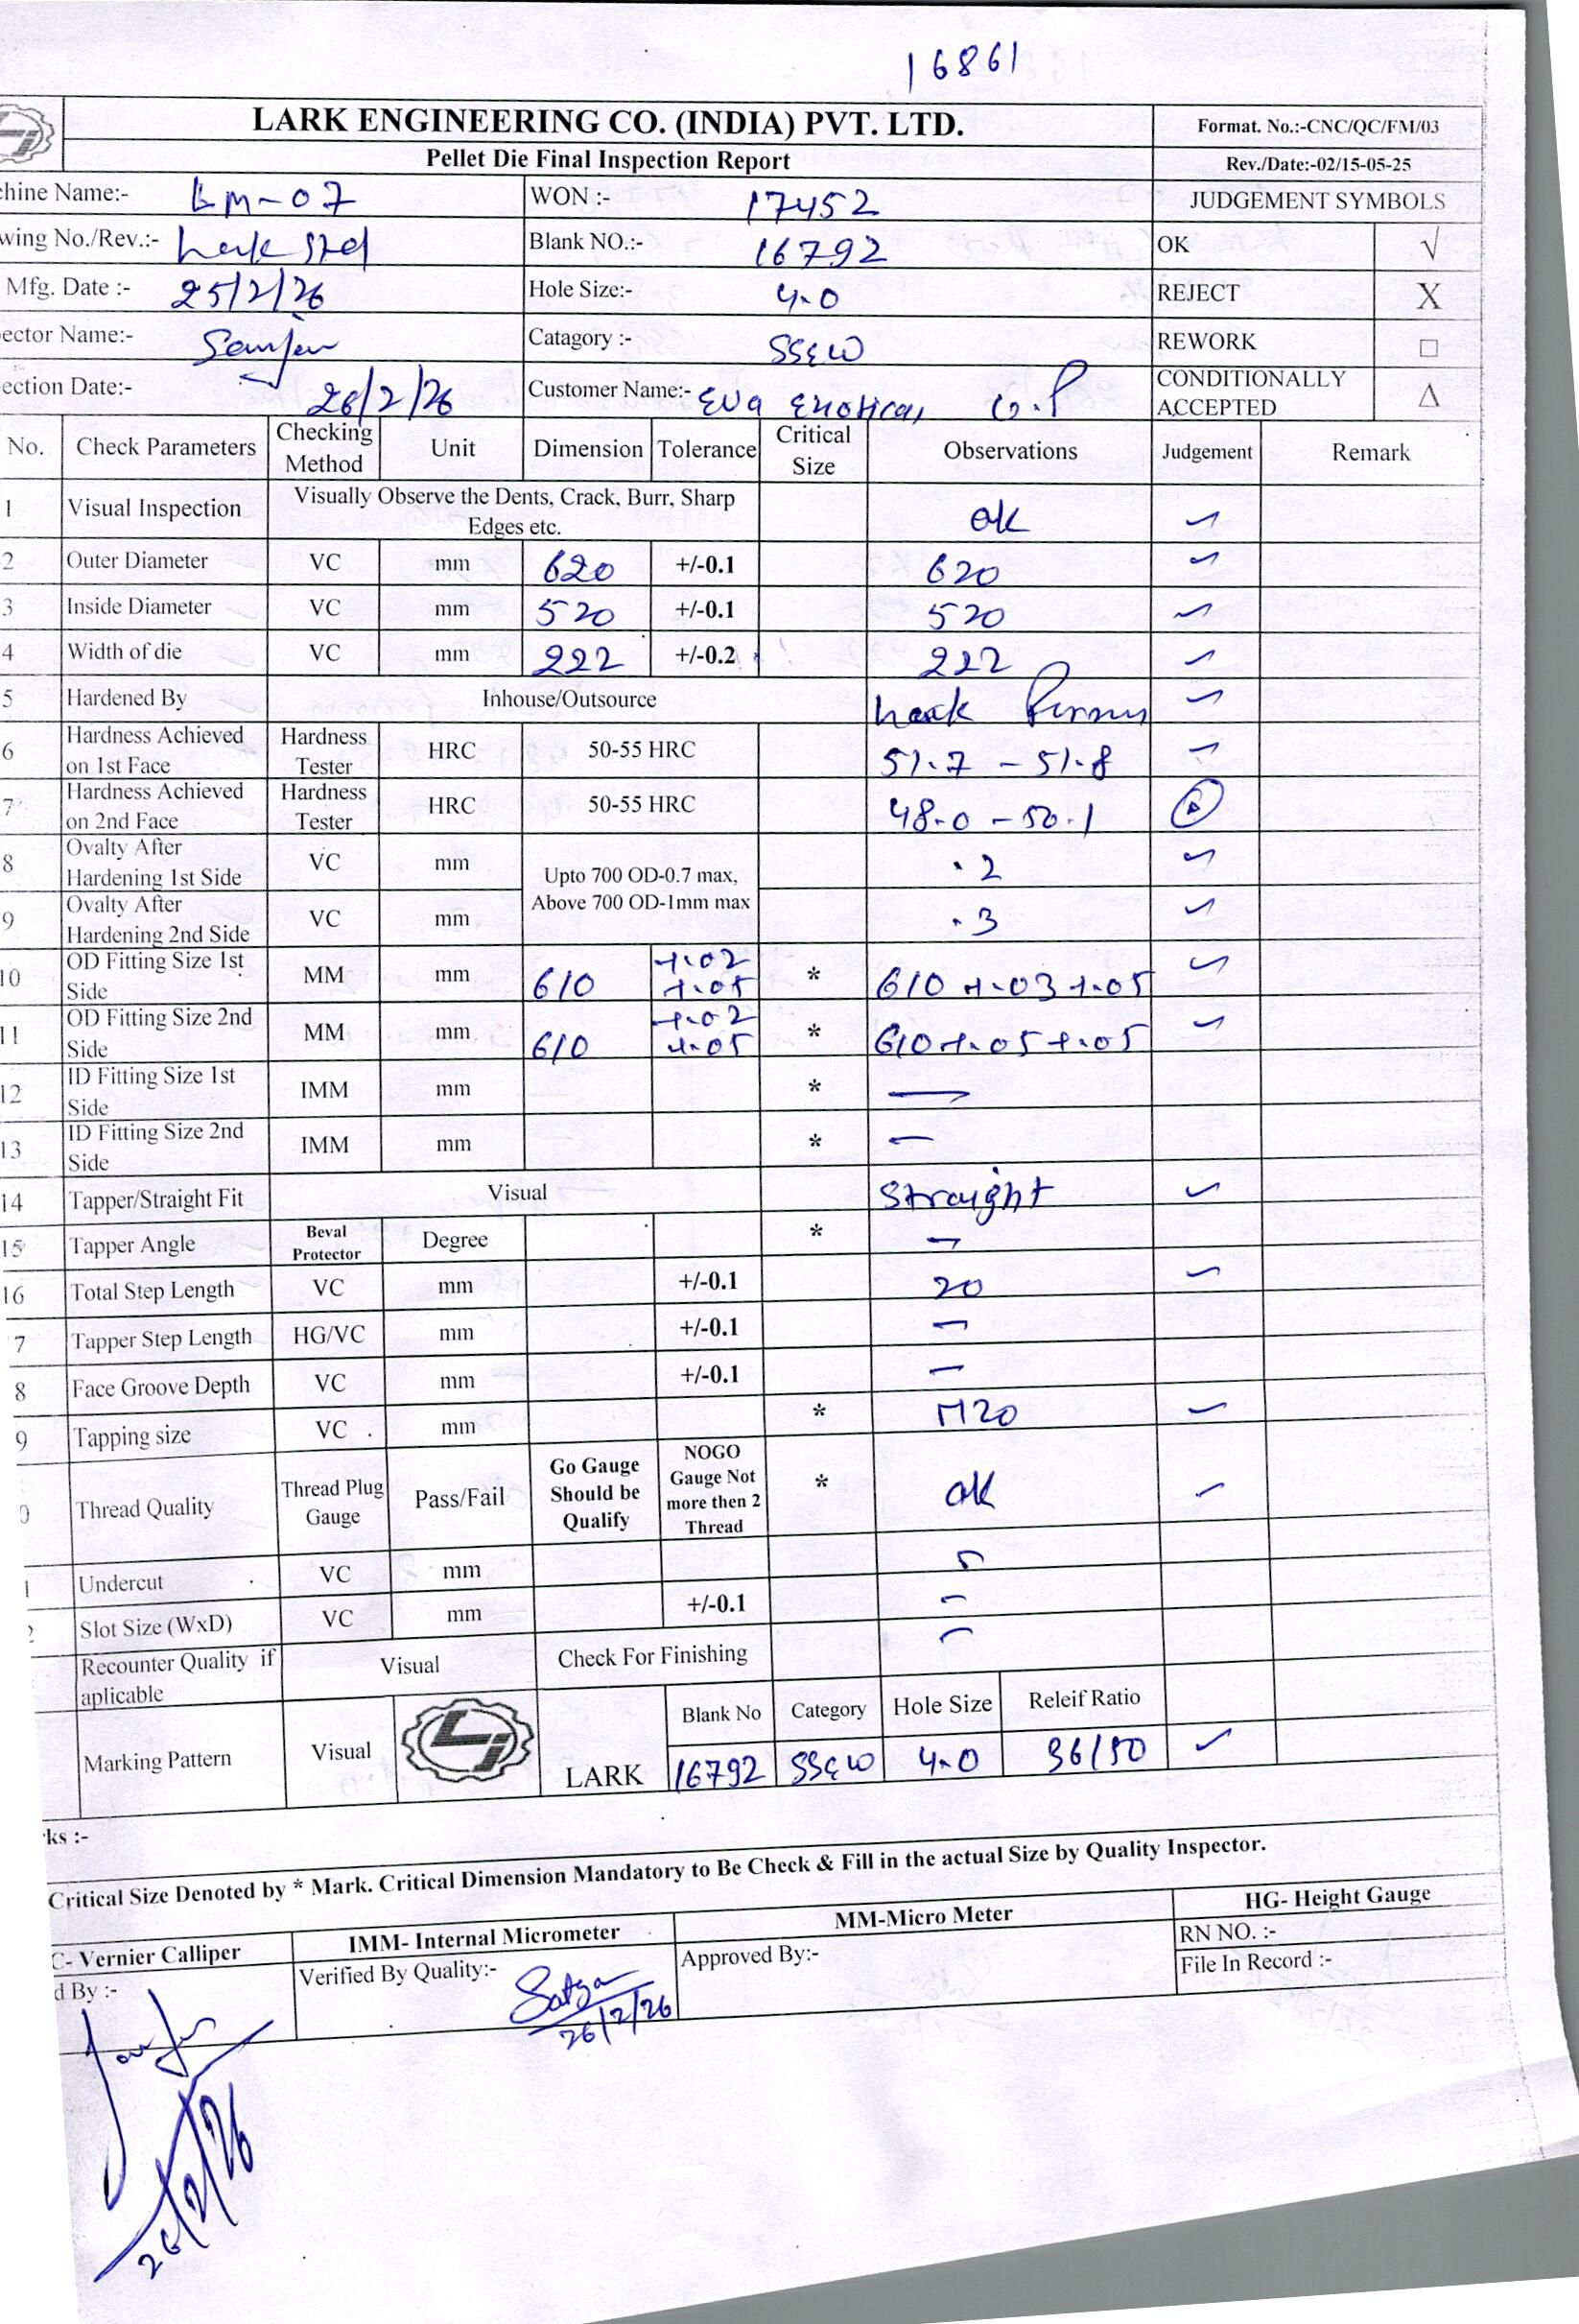 16861
LARK ENGINEERING CO. (INDIA) PVT. LTD.
Format. No.:-CNC/QC/FM/03
Pellet Die Final Inspection Report
Rev./Date:-02/15-05-25
chine Name:- LM-07 WON :- 17452 JUDGEMENT SYMBOLS
wing No./Rev.:- Lark Std Blank NO.:- 16792 OK √
Mfg. Date :- 25/2/26 Hole Size:- 4.0 REJECT X
ector Name:- Catagory :- SS&W REWORK □
ection Date:- 26/2/26 Customer Name:- Eva Exotica, CONDITIONALLY ACCEPTED Δ
No. Check Parameters Checking Method Unit Dimension Tolerance Critical Size Observations Judgement Remark
1 Visual Inspection Visually Observe the Dents, Crack, Burr, Sharp Edges etc. ok ✓
2 Outer Diameter VC mm 620 +/-0.1 620 ✓
3 Inside Diameter VC mm 520 +/-0.1 520 ✓
4 Width of die VC mm 222 +/-0.2 222 ✓
5 Hardened By Inhouse/Outsource Lark ✓
6 Hardness Achieved on 1st Face Hardness Tester HRC 50-55 HRC 51.7 - 51.8 ✓
7 Hardness Achieved on 2nd Face Hardness Tester HRC 50-55 HRC 48.0 - 50.1 Δ
8 Ovalty After Hardening 1st Side VC mm Upto 700 OD-0.7 max, .2 ✓
9 Ovalty After Hardening 2nd Side VC mm Above 700 OD-1mm max .3 ✓
10 OD Fitting Size 1st Side MM mm 610 +.02 +.05 * 610 +.03 +.05 ✓
11 OD Fitting Size 2nd Side MM mm 610 +.02 +.05 * 610 +.05 +.05 ✓
12 ID Fitting Size 1st Side IMM mm * —
13 ID Fitting Size 2nd Side IMM mm * —
14 Tapper/Straight Fit Visual Straight ✓
15 Tapper Angle Beval Protector Degree * —
16 Total Step Length VC mm +/-0.1 20 ✓
7 Tapper Step Length HG/VC mm +/-0.1 —
8 Face Groove Depth VC mm +/-0.1 —
9 Tapping size VC mm * M20 ✓
0 Thread Quality Thread Plug Gauge Pass/Fail Go Gauge Should be Qualify NOGO Gauge Not more then 2 Thread * ok ✓
1 Undercut VC mm
2 Slot Size (WxD) VC mm +/-0.1 —
Recounter Quality if aplicable Visual Check For Finishing —
Marking Pattern Visual LARK Blank No Category Hole Size Releif Ratio
16792 SS&W 4.0 36/50 ✓
rks :-
Critical Size Denoted by * Mark. Critical Dimension Mandatory to Be Check & Fill in the actual Size by Quality Inspector.
C- Vernier Calliper IMM- Internal Micrometer MM-Micro Meter HG- Height Gauge
d By :- Verified By Quality:- Approved By:- RN NO. :-
File In Record :-
26/2/26
26/2/26